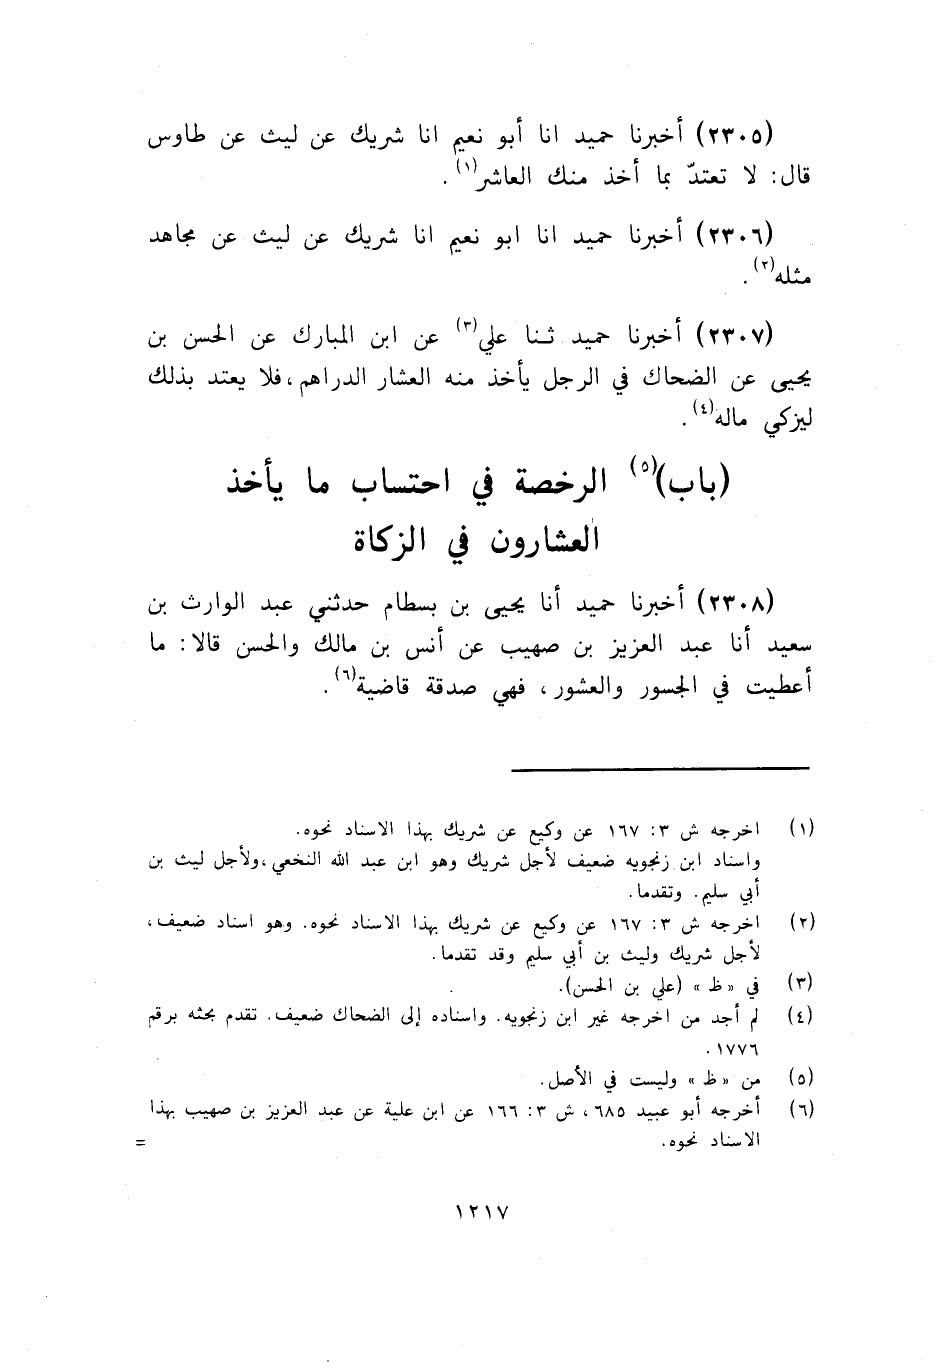 (٢٣٠٥) أخبرنا حميد انا أبو نعيم انا شريك عن ليث عن طاوس
قال: لا تعتدّ بما أخذ منك العاشر(١).
(٢٣٠٦) أخبرنا حميد انا ابو نعيم انا شريك عن ليث عن مجاهد
مثله(٢).
(٢٣٠٧) أخبرنا حميد ثنا علي(٣) عن ابن المبارك عن الحسن بن
يحيى عن الضحاك في الرجل يأخذ منه العشار الدراهم، فلا يعتد بذلك
ليزكي ماله(٤).
(باب)(٥) الرخصة في احتساب ما يأخذ
العشارون في الزكاة
(٢٣٠٨) أخبرنا حميد أنا يحيى بن بسطام حدثني عبد الوارث بن
سعيد أنا عبد العزيز بن صهيب عن أنس بن مالك والحسن قالا: ما
أعطيت في الجسور والعشور، فهي صدقة قاضية(٦).
(١) اخرجه ش ٣: ١٦٧ عن وكيع عن شريك بهذا الاسناد نحوه.
واسناد ابن زنجويه ضعيف لأجل شريك وهو ابن عبد الله النخعي، ولأجل ليث بن
أبي سليم. وتقدما.
(٢) اخرجه ش ٣: ١٦٧ عن وكيع عن شريك بهذا الاسناد نحوه. وهو اسناد ضعيف،
لأجل شريك وليث بن أبي سليم وقد تقدما.
(٣) في «ظ» (علي بن الحسن).
(٤) لم أجد من اخرجه غير ابن زنجويه. واسناده إلى الضحاك ضعيف. تقدم بحثه برقم
١٧٧٦.
(٥) من «ظ» وليست في الأصل.
(٦) أخرجه أبو عبيد ٦٨٥، ش ٣: ١٦٦ عن ابن علية عن عبد العزيز بن صهيب بهذا
الاسناد نحوه. =
١٢١٧